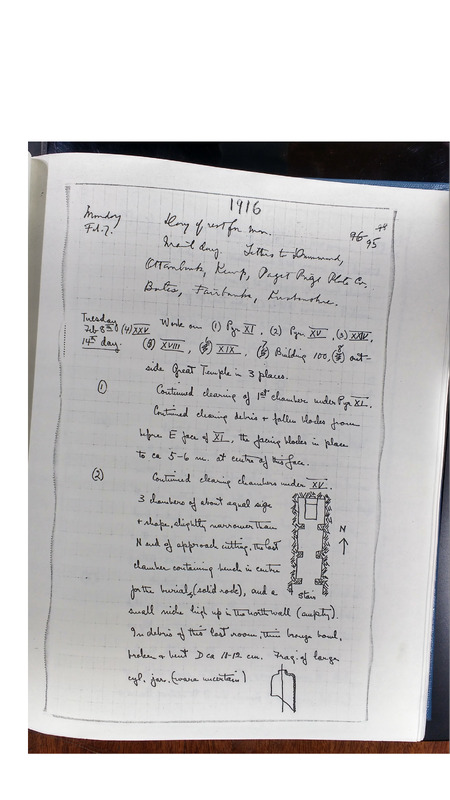 1916
Monday Day of rest for men. 96-95
Feb. 7. Mail day. Letters to Drummond,
Kemp, Paget Prize Plate Co.
Bates, Fairbanks,
Tuesday
Feb 8th (4) XXV Work on (1) Pyr XI, (2) Pyr XV, (3) XXIV,
14th day. (5) XVIII, (6) XIX, (7) Building 100, (8) out-
side Great Temple in 3 places.
(1) Continued clearing of 1st chamber under Pyr XI.
Continued clearing debris + fallen blocks from
before E face of XI, the facing blocks in place
to ca 5-6 m. at centre of this face.
(2) Continued clearing chambers under XV.
3 chambers of about equal size
+ shape, slightly narrower than
N end of approach cutting, the last
chamber containing bench in centre
for the burial, (solid rock), and a
small niche high up in the north wall (empty).
In debris of this last room, thin bronze bowl,
broken + bent D ca 11-12 cm. Frag. of large
cyl. jar. (ware uncertain)
N
stair